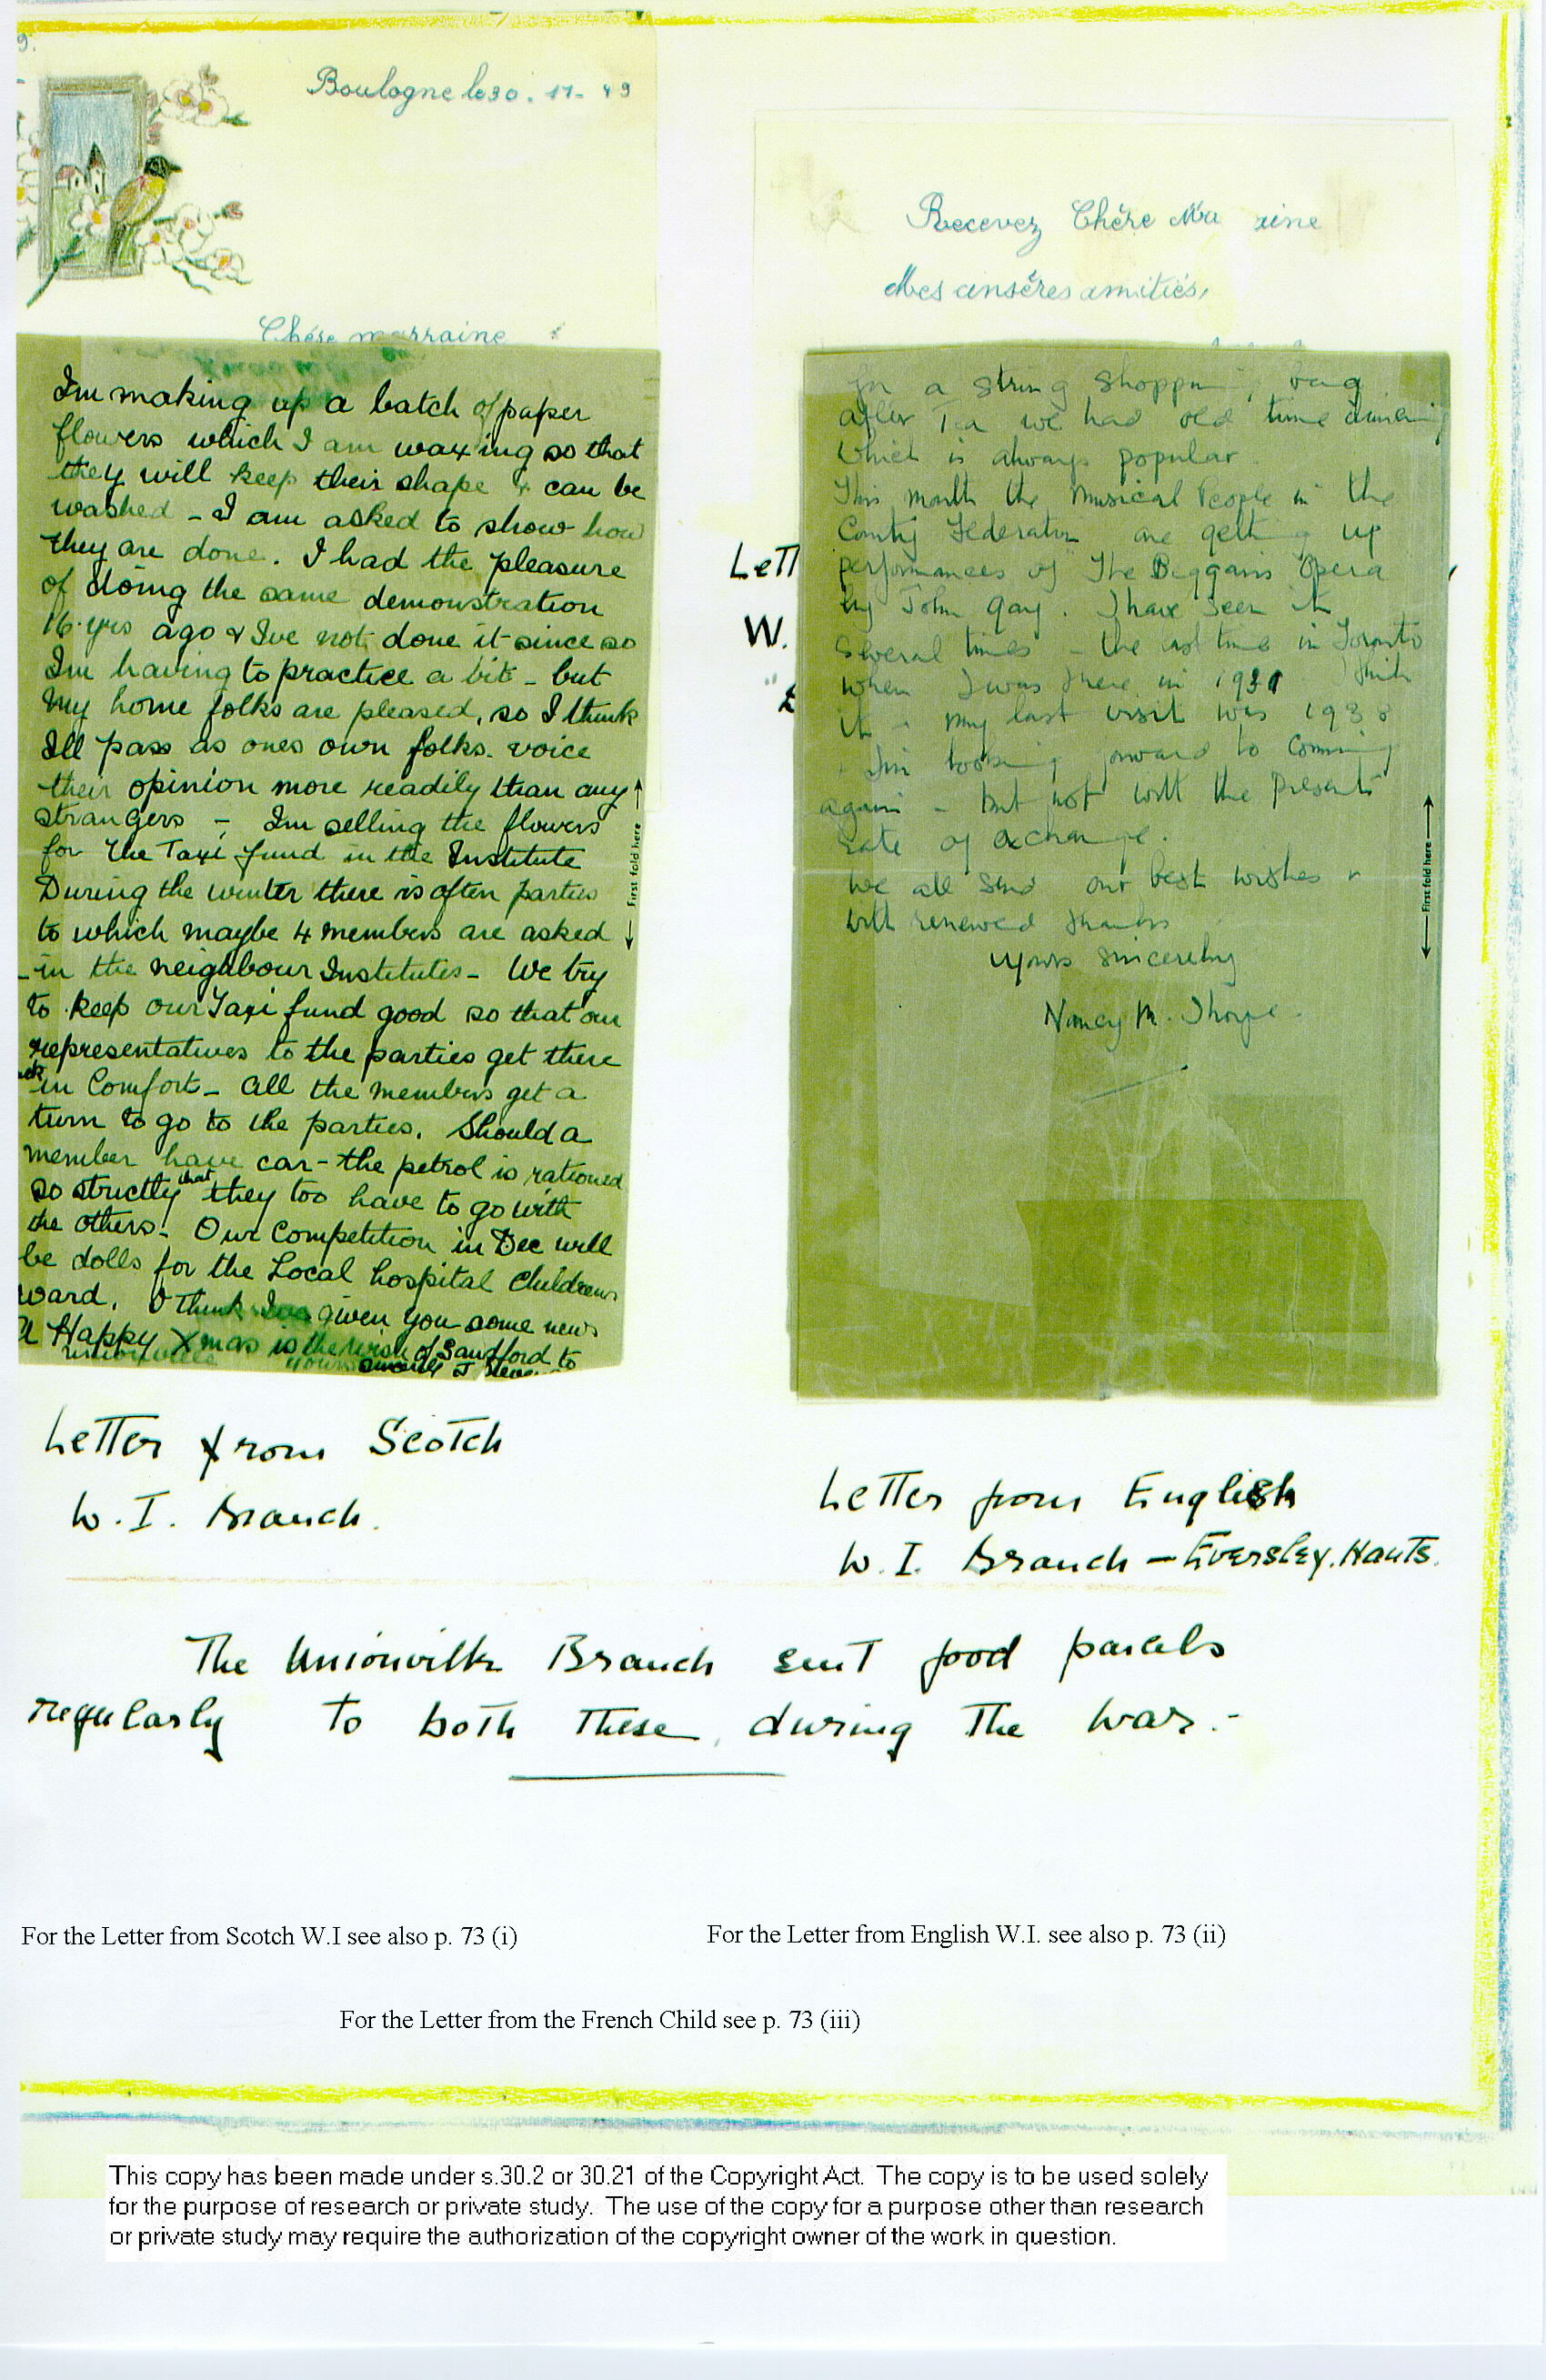 9.
Boulogne le 30. 11- 49
Chére marraine
Im making up a batch of paper
flowers which I am waxing so that
they will keep their shape & can be
washed - I am asked to show how
they are done. I had the pleasure
of doing the same demonstration
16 yrs ago & Ive not done it since so
Im having to practice a bit - but
My home folks are pleased, so I think
Ill pass as ones own folks voice
their opinion more readily than any
strangers - Im selling the flowers
for the Taxi fund in the Institute
During the winter there is often parties
to which maybe 4 members are asked
- in the neighbour Institutes - We try
to keep our Taxi fund good so that our
representatives to the parties get there
in Comfort - all the members get a
turn to go to the parties. Should a
member have car - the petrol is rationed
so strictly that they too have to go with
the others. Our Competition in Dec will
be dolls for the Local hospital Childrens
ward. I think Ive given you some news
A Happy Xmas is the wish of Sandford to
Unionville yours
First fold here
Letter from Scotch
W. I. Branch.
Recevez Chére Ma raine
Mes cinsères amitiés,
Lett
W.
for a string shopping bag
after Tea we had old time dancing
which is always popular
This month the Musical People in the
County Federation are getting up
performances of "The Beggars Opera
by John Gay. I have seen it
several times - the last time in Toronto
when I was there in 1931 I think
it - my last visit was 1938
Im looking forward to coming
again - but not with the present
rate of exchange.
We all send our best wishes &
with renewed thanks
yours sincerely
Nancy M. Thorpe.
First fold here
Letter from English
W. I. Branch - Eversley. Hants.
The Unionville Branch sent food parcels
regularly to both these, during the war.-
For the Letter from Scotch W.I see also p. 73 (i)
For the Letter from English W.I. see also p. 73 (ii)
For the Letter from the French Child see p. 73 (iii)
This copy has been made under s.30.2 or 30.21 of the Copyright Act. The copy is to be used solely
for the purpose of research or private study. The use of the copy for a purpose other than research
or private study may require the authorization of the copyright owner of the work in question.